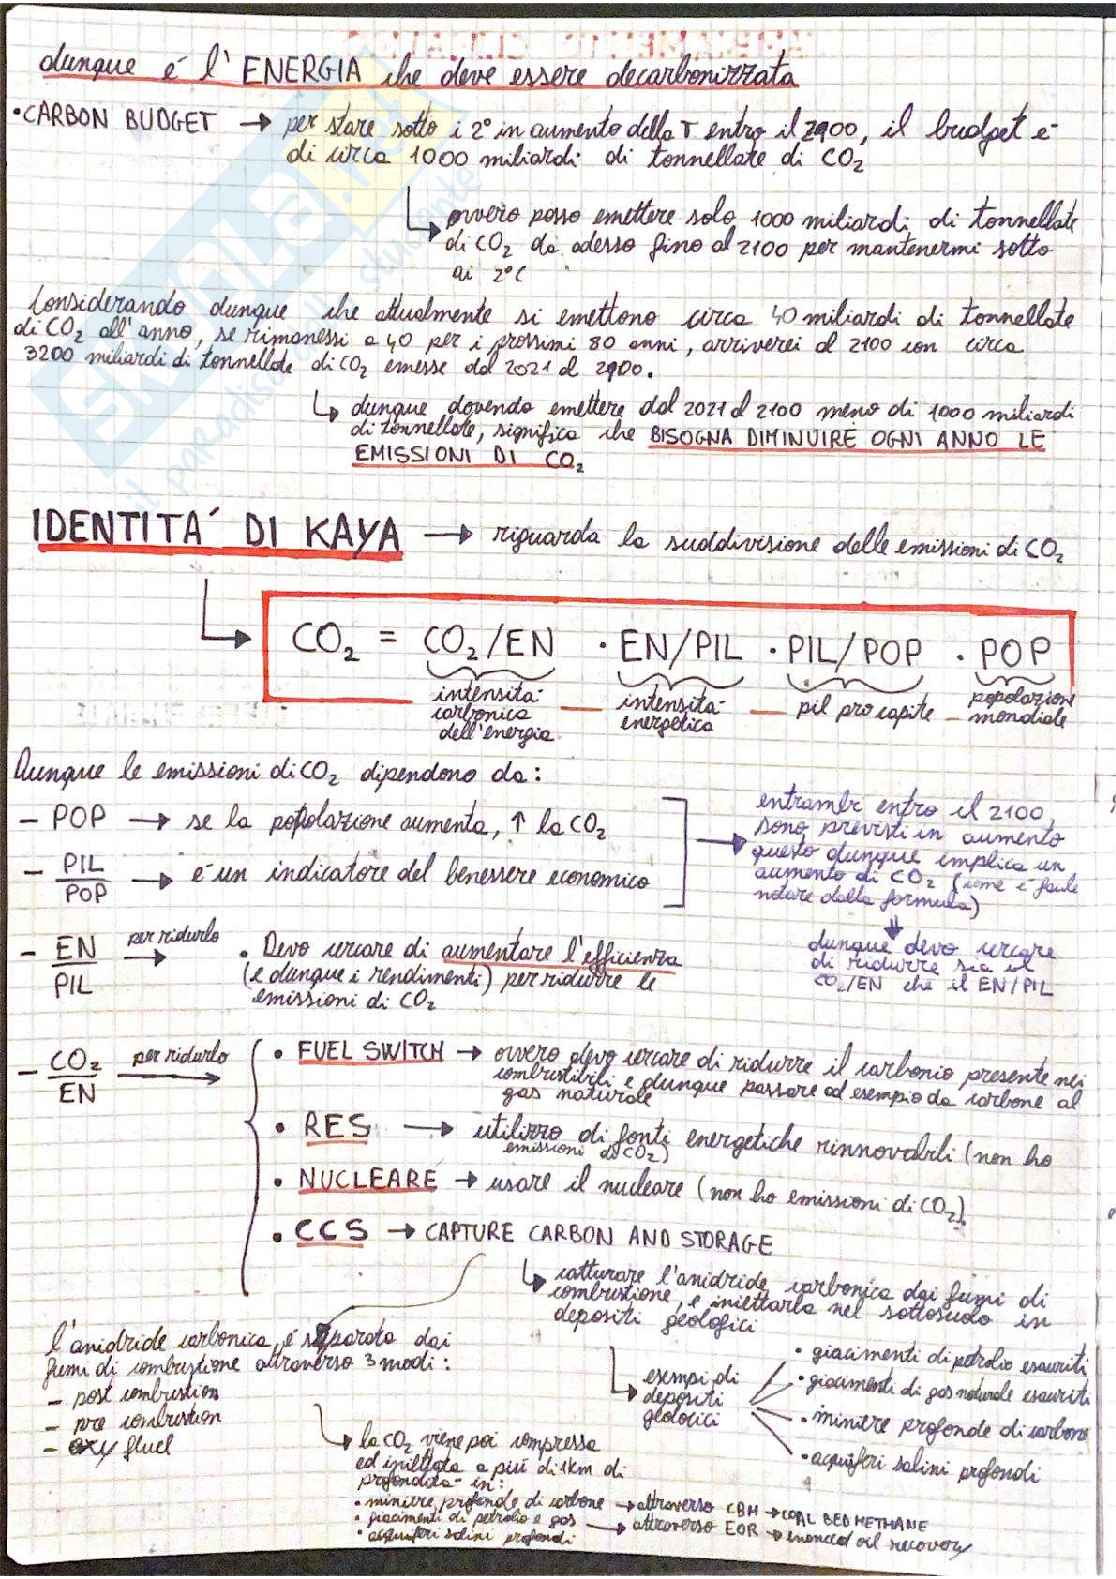 dunque é l' ENERGIA che deve essere decarbonizzata
• CARBON BUDGET → per stare sotto i 2° in aumento della T entro il 2900, il budget é
di circa 1000 miliardi di tonnellate di CO₂
ovvero posso emettere solo 1000 miliardi di tonnellate
di CO₂ da adesso fino al 2100 per mantenermi sotto
ai 2°C
Considerando dunque che attualmente si emettono circa 40 miliardi di tonnellate
di CO₂ all'anno, se rimanessi a 40 per i prossimi 80 anni, arriverei al 2100 con circa
3200 miliardi di tonnellate di CO₂ emesse dal 2021 al 2900.
dunque dovendo emettere dal 2021 al 2100 meno di 1000 miliardi
di tonnellate, significa che BISOGNA DIMINUIRE OGNI ANNO LE
EMISSIONI DI CO₂
IDENTITA' DI KAYA → riguarda la suddivisione delle emissioni di CO₂
CO₂ = CO₂/EN · EN/PIL · PIL/POP · POP
intensitá carbonica dell'energia — intensitá energetica — pil pro capite — popolazione mondiale
Dunque le emissioni di CO₂ dipendono da:
- POP → se la popolazione aumenta, ↑ la CO₂
- PIL/POP → é un indicatore del benessere economico
entrambi entro il 2100,
sono previsti in aumento
questo dunque implica un
aumento di CO₂ (come é facile
notare dalla formula)
dunque devo cercare
di ridurre sia il
CO₂/EN che il EN/PIL
- EN/PIL per ridurlo → • Devo cercare di aumentare l'efficienza
(e dunque i rendimenti) per ridurre le
emissioni di CO₂
- CO₂/EN per ridurlo →
• FUEL SWITCH → ovvero devo cercare di ridurre il carbonio presente nei
combustibili e dunque passare ad esempio da carbone al
gas naturale
• RES → utilizzo di fonti energetiche rinnovabili (non ho
emissioni di CO₂)
• NUCLEARE → usare il nucleare (non ho emissioni di CO₂).
• CCS → CAPTURE CARBON AND STORAGE
catturare l'anidride carbonica dai fumi di
combustione, e iniettarla nel sottosuolo in
depositi geologici
esempi di
depositi
geologici
• giacimenti di petrolio esauriti
• giacimenti di gas naturale esauriti
• miniere profonde di carbone
• acquiferi salini profondi
l'anidride carbonica é separata dai
fumi di combustione attraverso 3 modi:
- post combustion
- pre combustion
- oxy fluel
la CO₂ viene poi compressa
ed iniettata a piú di 1km di
profonditá in:
• miniere profonde di carbone → attraverso CBM → COAL BED METHANE
• giacimenti di petrolio e gas → attraverso EOR → enanced oil recovery
• acquiferi salini profondi